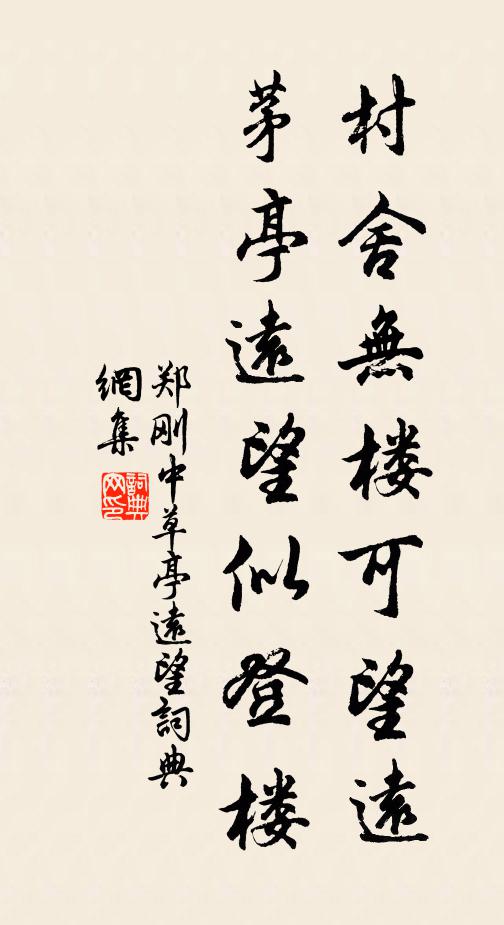 村舍無楼可望遠
茅亭遠望似登楼
郑刚中草亭遠望詞典
網集
詞典
网印